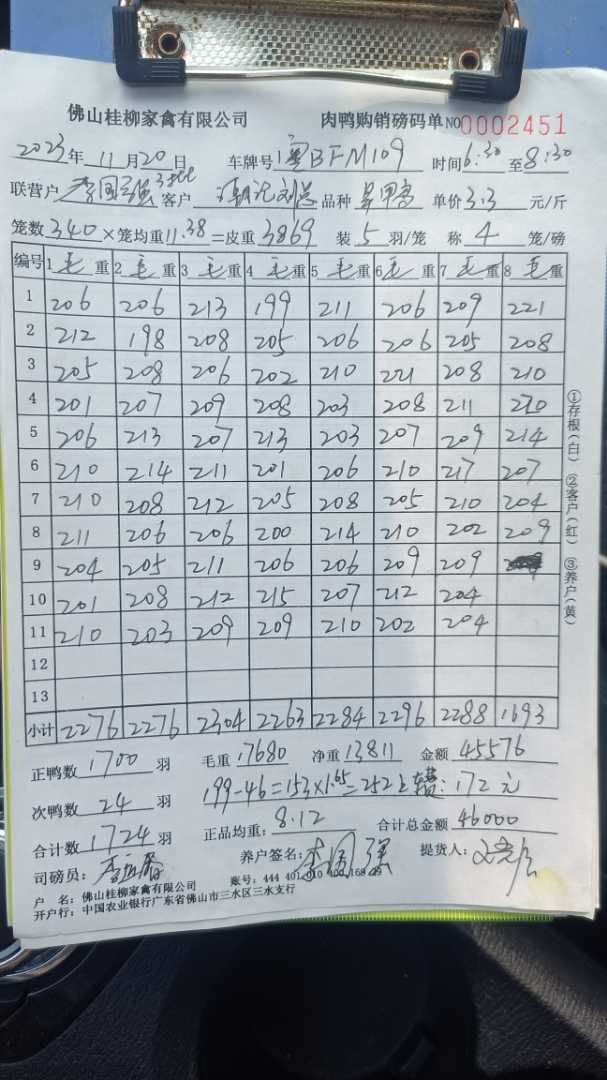 佛山桂柳家禽有限公司 肉鸭购销磅码单 NO 0002451
2023年 11月20日 车牌号 粤BFM109 时间6:30至8:30
联营户 李国强 客户 刘总 品种 单价3.3元/斤
笼数340×笼均重11.38=皮重3869 装5羽/笼 称4笼/磅
编号 1毛重 2毛重 3毛重 4毛重 5毛重 6毛重 7毛重 8毛重
1 206 206 213 199 211 206 209 221
2 212 198 208 205 206 206 205 208
3 205 208 206 202 210 221 208 210
4 201 207 209 208 203 208 211 220
5 206 213 207 213 203 207 209 214
6 210 214 211 201 206 210 217 207
7 210 208 212 205 208 205 210 204
8 211 206 206 200 214 210 202 209
9 204 205 211 206 206 209 209
10 201 208 212 215 207 212 204
11 210 203 209 209 210 202 204
12
13
小计 2276 2276 2304 2263 2284 2296 2288 1693
正鸭数1700羽 毛重17680 净重13811 金额45576
次鸭数24羽 199-46=153×1.65=252 172元
合计数1724羽 正品均重:8.12 合计总金额46000
司磅员: 养户签名:李国强 提货人:
户 名:佛山桂柳家禽有限公司 账号:444 401 010 400 168
开户行:中国农业银行广东省佛山市三水区三水支行
①存根(白) ②客户(红) ③养户(黄)